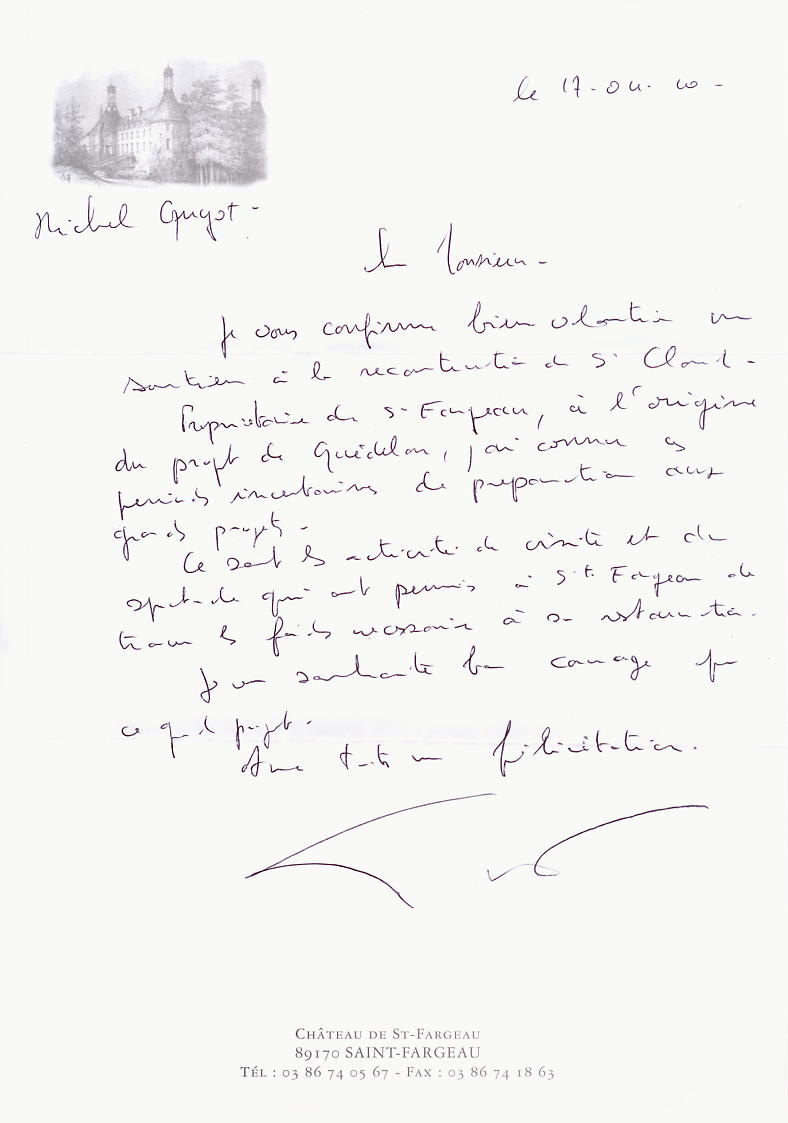 le 17-04. 10 -
Michel Guyot -
Monsieur -
Je vous confirme bien volontier mon
soutien à la reconstruction de St Cloud -
Propriétaire de St Fargeau, à l'origine
du projet de Guédelon, j'ai connu ces
périodes incertaines de préparation aux
grands projets -
Ce sont les activités de visite et de
spectacle qui ont permis à St Fargeau de
les fonds nécessaires à sa restauration.
Je vous souhaite bon courage pour
ce grand projet.
Avec toutes mes félicitations.
CHÂTEAU DE ST-FARGEAU
89170 SAINT-FARGEAU
TÉL : 03 86 74 05 67 - FAX : 03 86 74 18 63